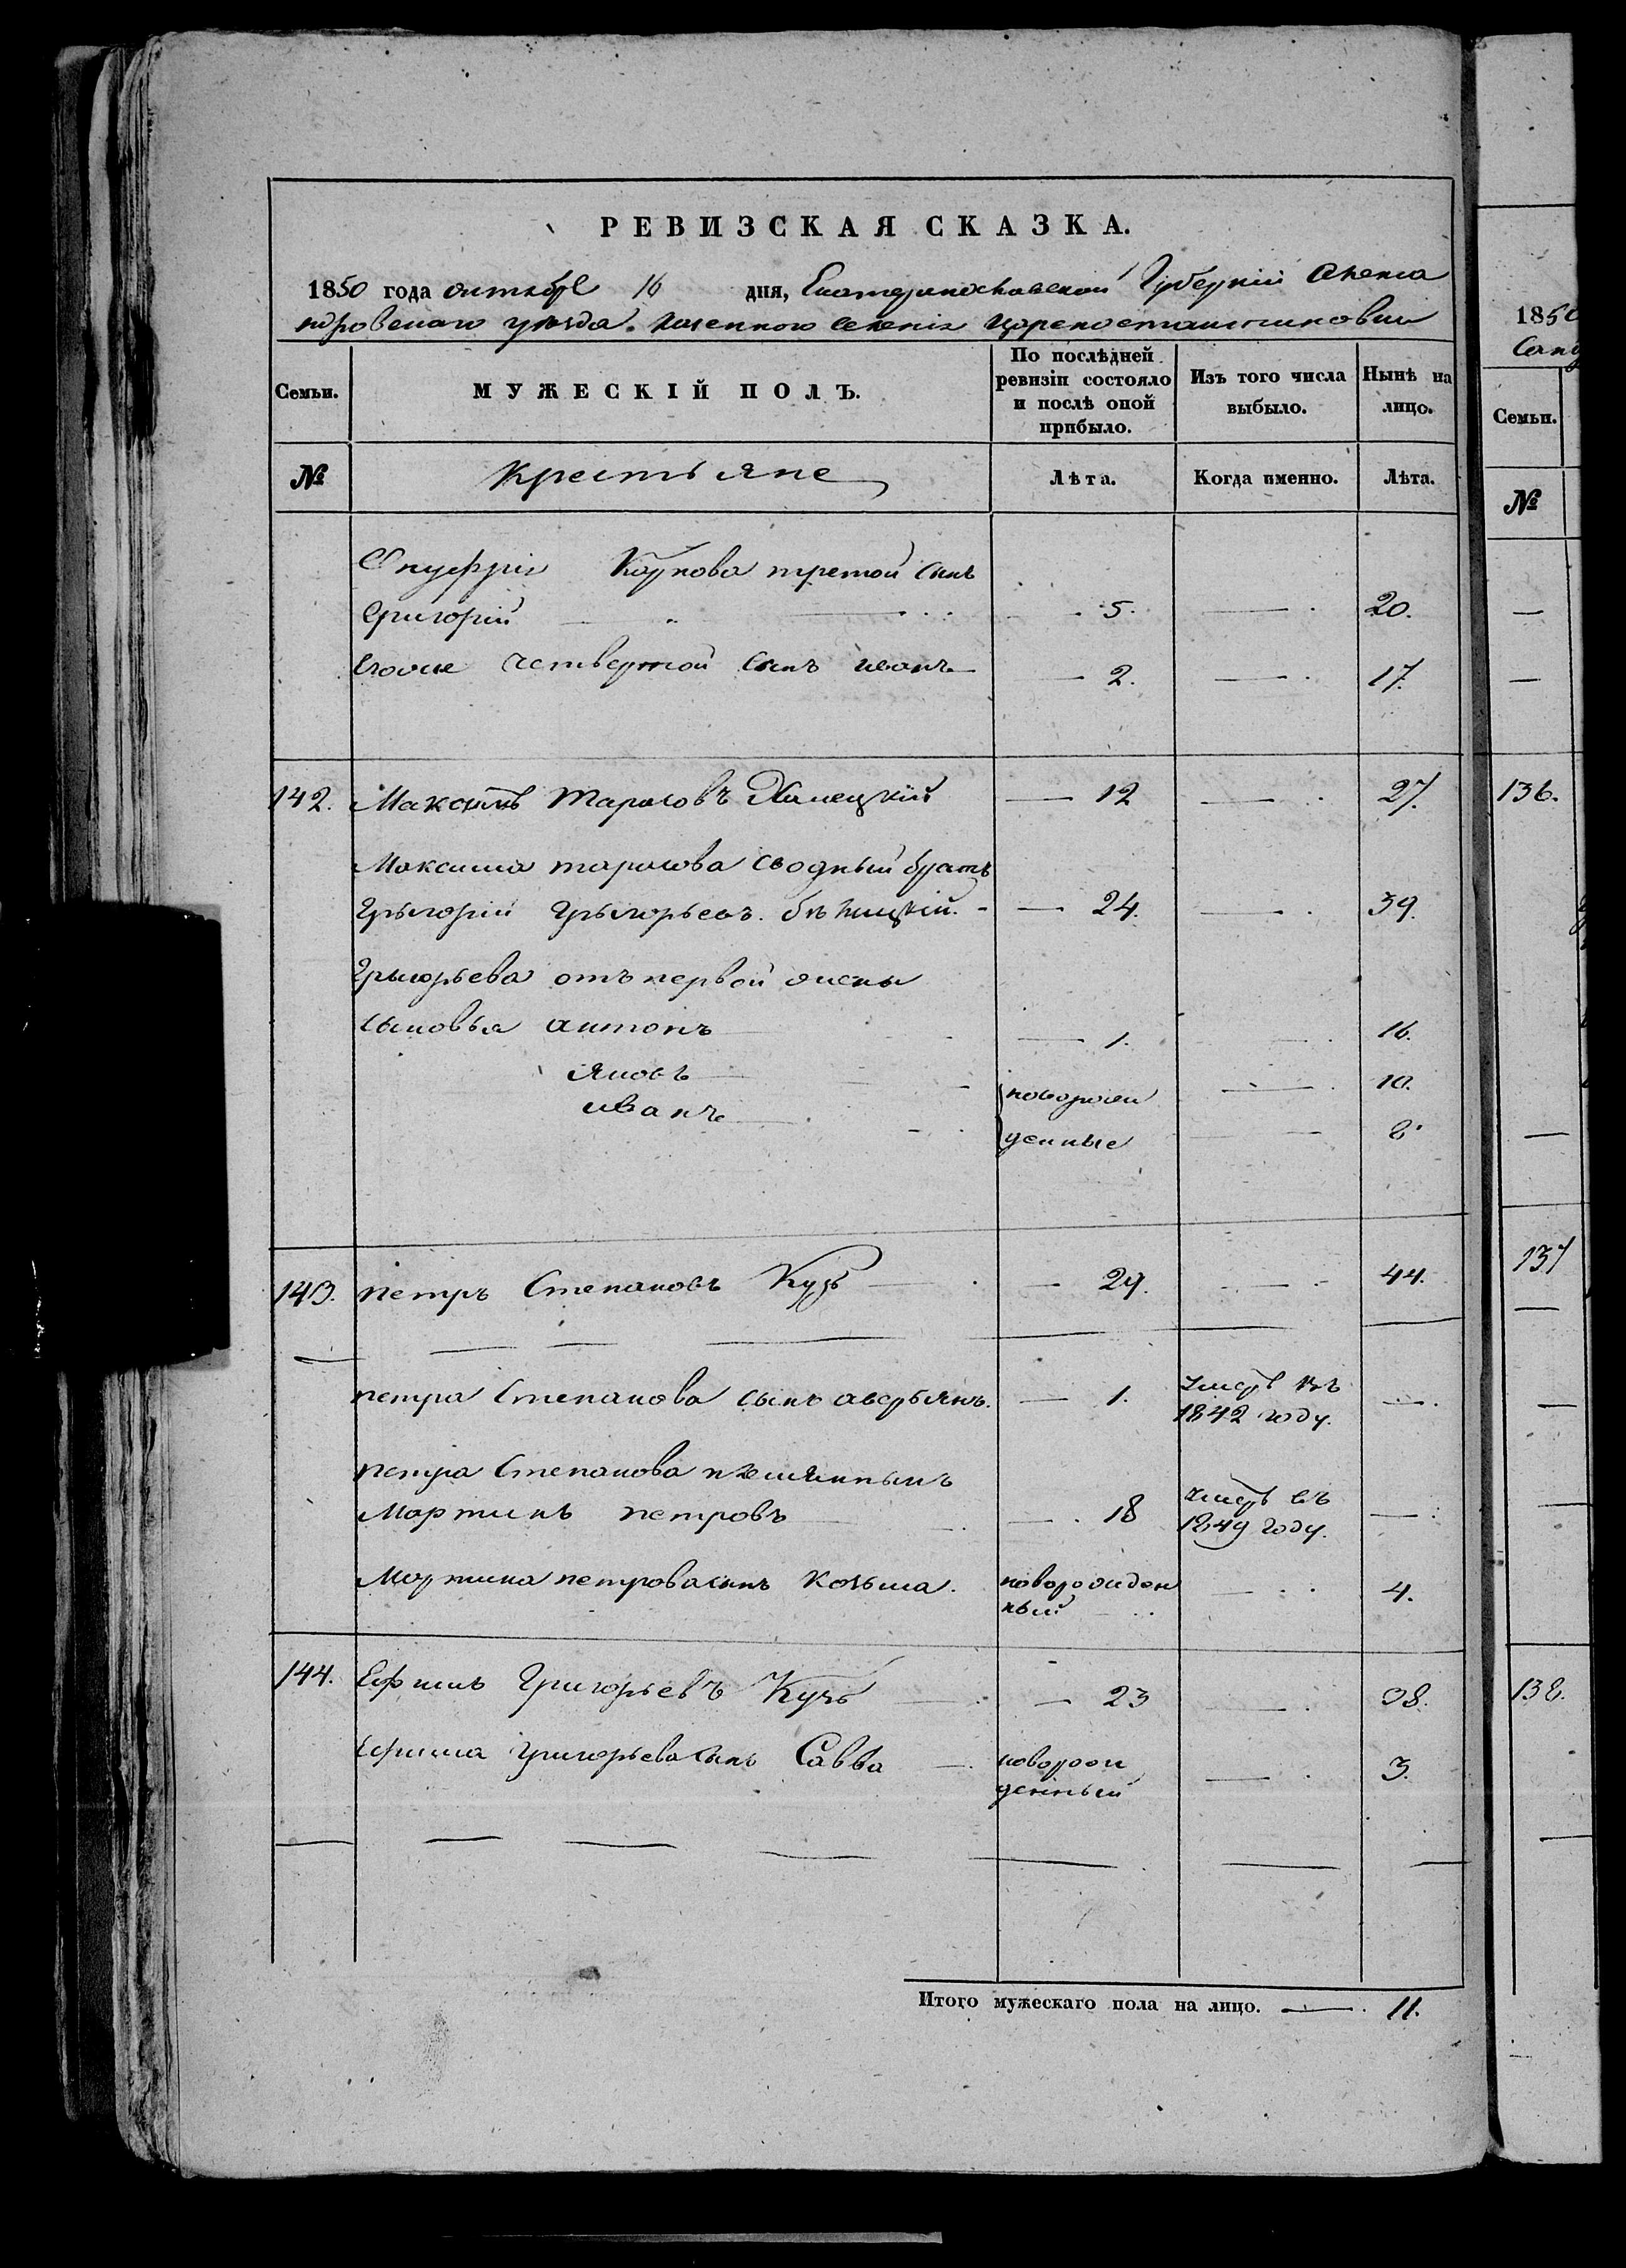 РЕВИЗСКАЯ СКАЗКА.
1850 года октября 16 дня, Екатеринославской Губерніи Алекса
ндровскаго уѣзда. казенного селенія Цареконстантиновки
Семьи.
МУЖЕСКІЙ ПОЛЪ.
По послѣдней ревизіи состояло и послѣ оной прибыло.
Изъ того числа выбыло.
Нынѣ на лицо.
№ крестьяне Лѣта. Когда именно. Лѣта.
Онуфрія Карпова третой сынъ
Григорій — 5. — 20.
Его же четвертой сынъ иванъ — 2. — 17.
142. Максимъ Тарасовъ — 12 — 27.
Максима тарасова сводный братъ
Грыгорій Грыгорьевъ. — 24. — 39.
Грыгорьева отъ первой жены
сыновья антонъ — 1. — 16.
Яковъ новорож — 10.
иванъ денные — 8.
143. петръ Степановъ Кузь — 29. — 44.
петра Степанова сынъ аверьянъ. — 1. умеръ въ —
1842 году.
петра Степанова племянныкъ
Мартинъ петровъ — 18 умеръ въ —
1849 году.
Мартина петрова сынъ козьма. новорожден — 4.
ный
144. Ефимъ Григорьевъ Кузь — 23 — 38.
ефима григорьева сынъ Савва — новорож — 3.
денный
Итого мужескаго пола на лицо. — 11.
1850
Семьи.
№
136.
137
138.